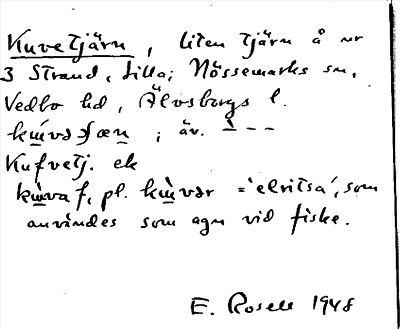 Kuvetjärn, liten tjärn å nr
3 Strand, Lilla; Nössemarks sn,
Vedbo hd, Älvsborgs l.
; äv. ̀ - -
Kufvetj. ek
f, pl. = 'elritsa', som
användes som agn vid fiske.
E. Rosell 1948